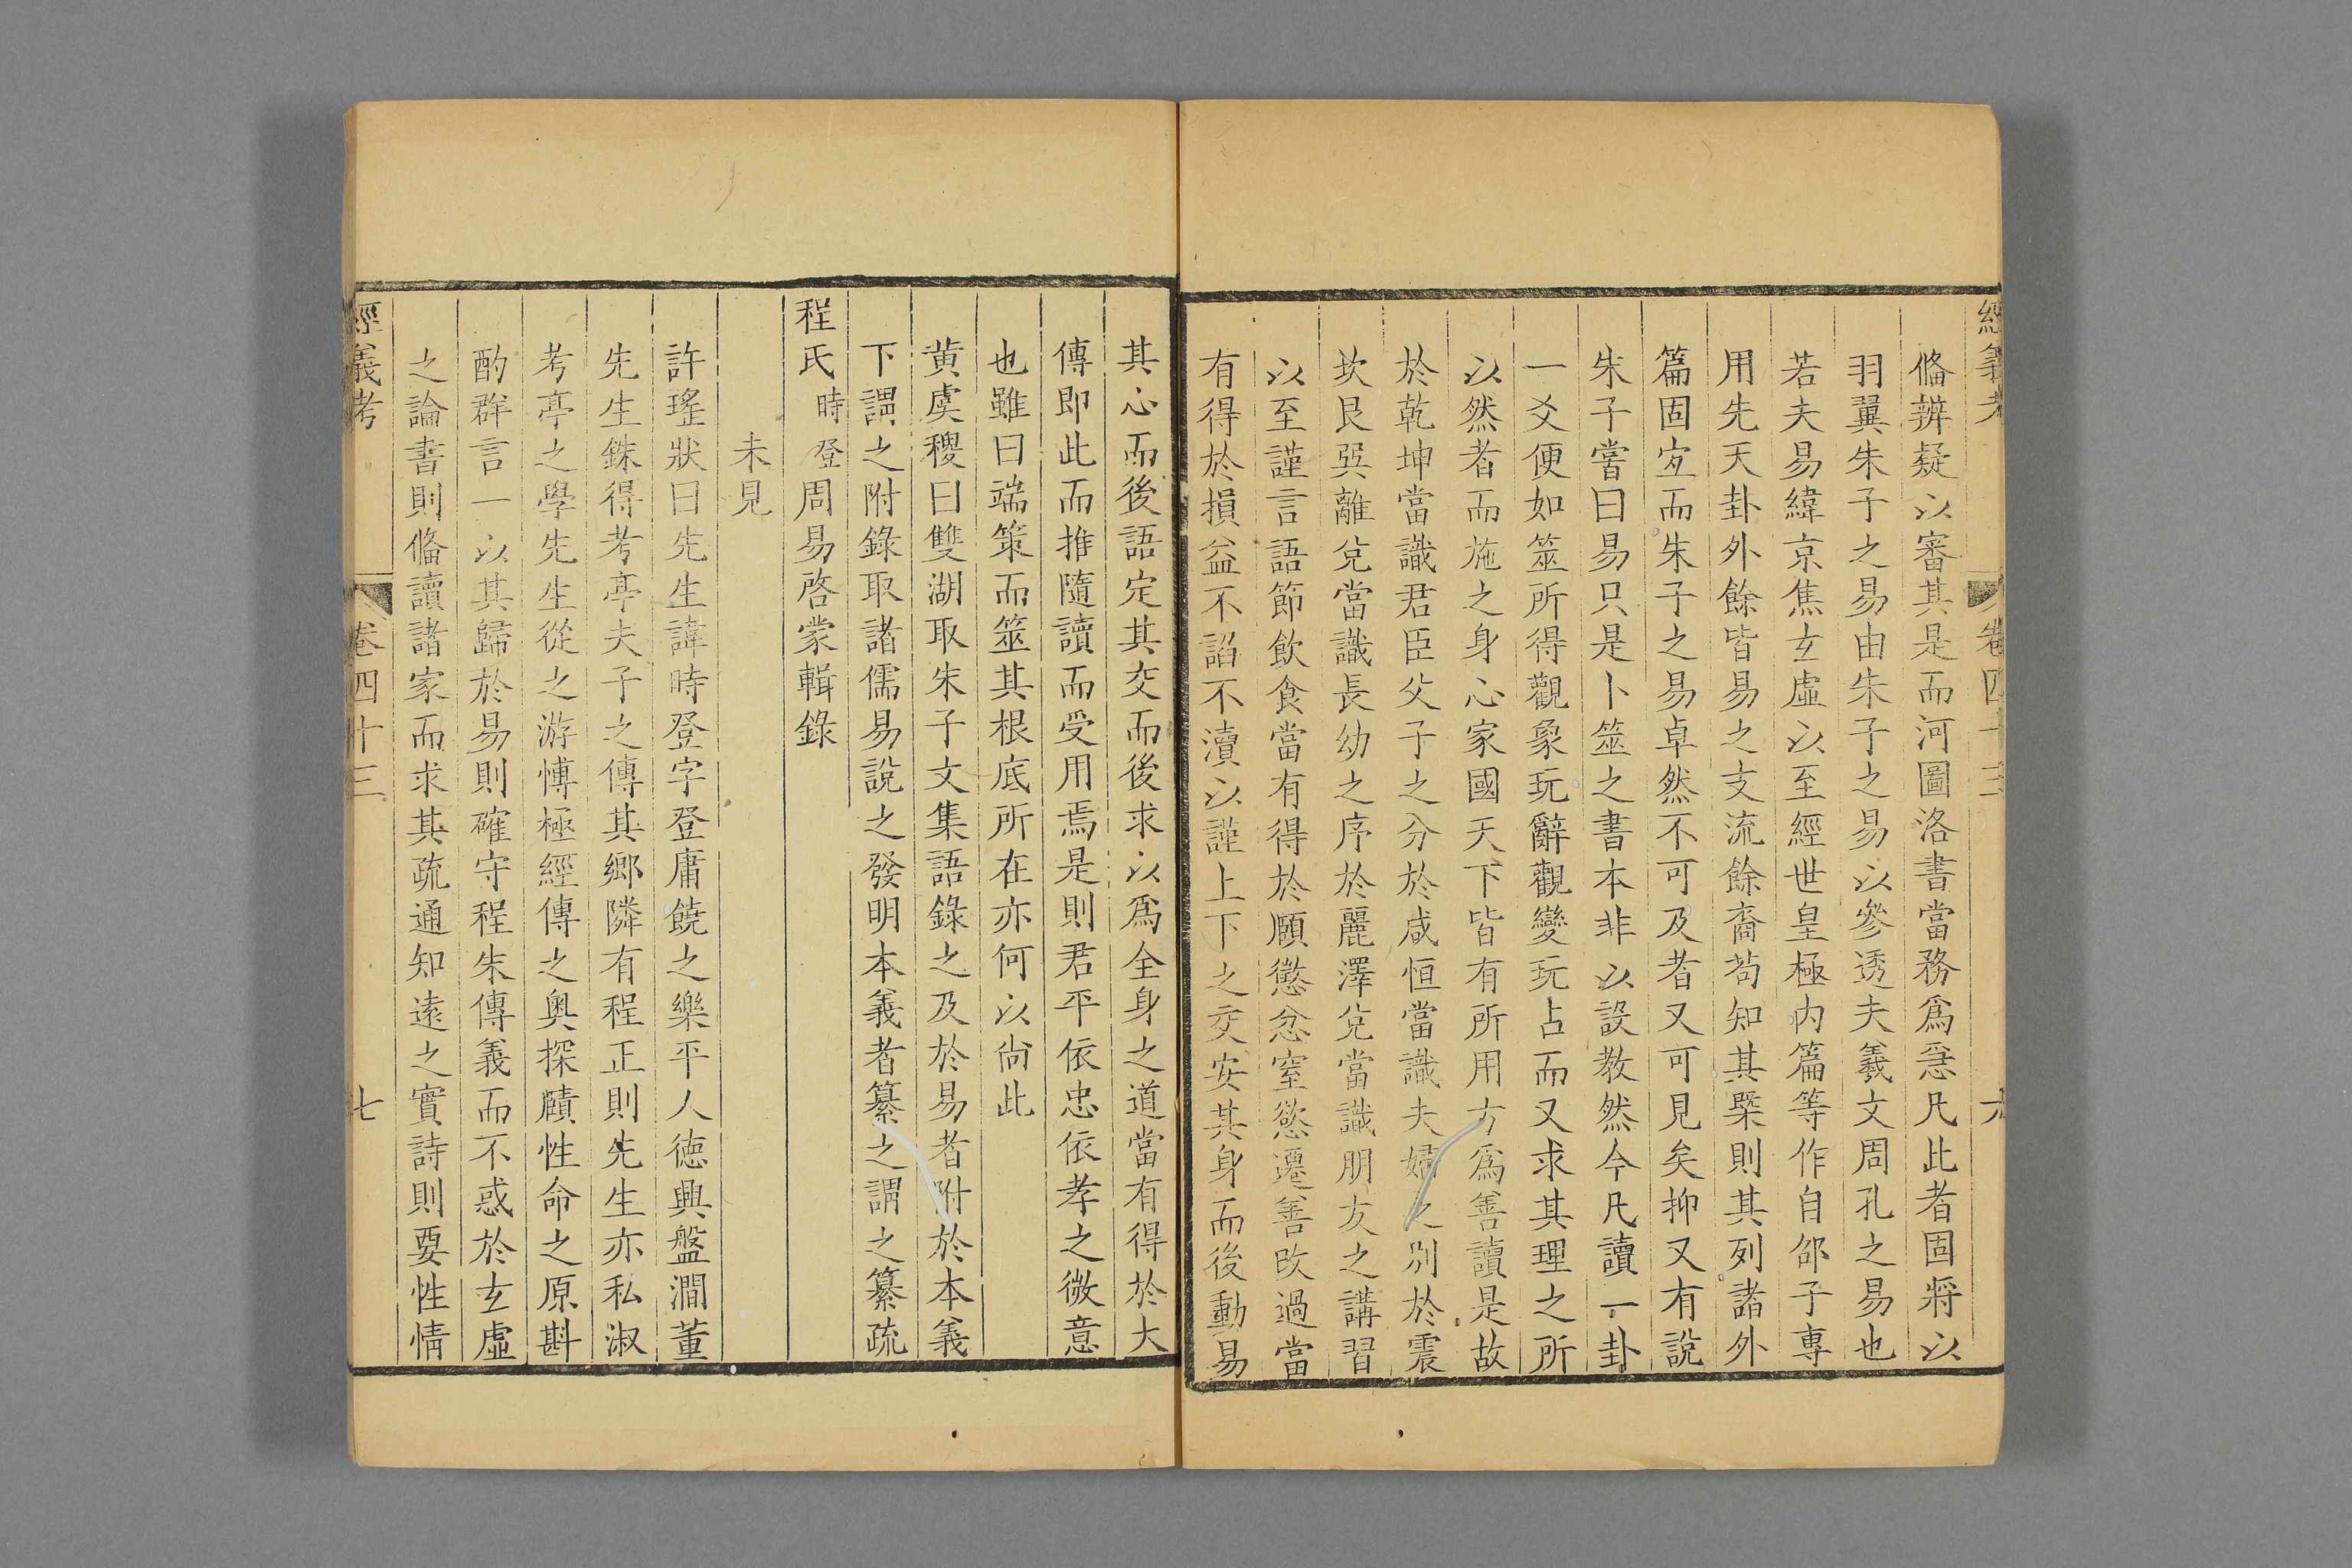 經義考 卷四十三 六
偹辨疑以審其是而河圖洛書當務爲急凡此者固將以
羽翼朱子之易由朱子之易以參透夫羲文周孔之易也
若夫易緯京焦玄虛以至經世皇極內篇等作自邵子專
用先天卦外餘皆易之支流餘裔茍知其槩則其列諸外
篇固宐而朱子之易卓然不可及者又可見矣抑又有說
朱子嘗曰易只是卜筮之書本非以設教然今凡讀一卦
一爻便如筮所得觀象玩辭觀變玩占而又求其理之所
以然者而施之身心家國天下皆有所用方爲善讀是故
於乾坤當識君臣父子之分於咸恒當識夫婦之別於震
坎艮巽離兌當識長幼之序於麗澤兌當識朋友之講習
以至謹言語節飲食當有得於頤懲忿窒慾遷善改過當
有得於損益不諂不瀆以謹上下之交安其身而後動易
其心而後語定其交而後求以爲全身之道當有得於大
傳即此而推隨讀而受用焉是則君平依忠依孝之微意
也雖曰端策而筮其根底所在亦何以尚此
黃虞稷曰雙湖取朱子文集語錄之及於易者附於本義
下謂之附錄取諸儒易說之發明本義者纂之謂之纂疏
程氏時登周易啓蒙輯錄
未見
許瑤狀曰先生諱時登字登庸饒之樂平人德興盤澗董
先生銖得考亭夫子之傳其鄉隣有程正則先生亦私淑
考亭之學先生從之游慱極經傳之奧探賾性命之原斟
酌群言一以其歸於易則確守程朱傳義而不惑於玄虛
之論書則偹讀諸家而求其疏通知遠之實詩則要性情
經義考 卷四十三 七